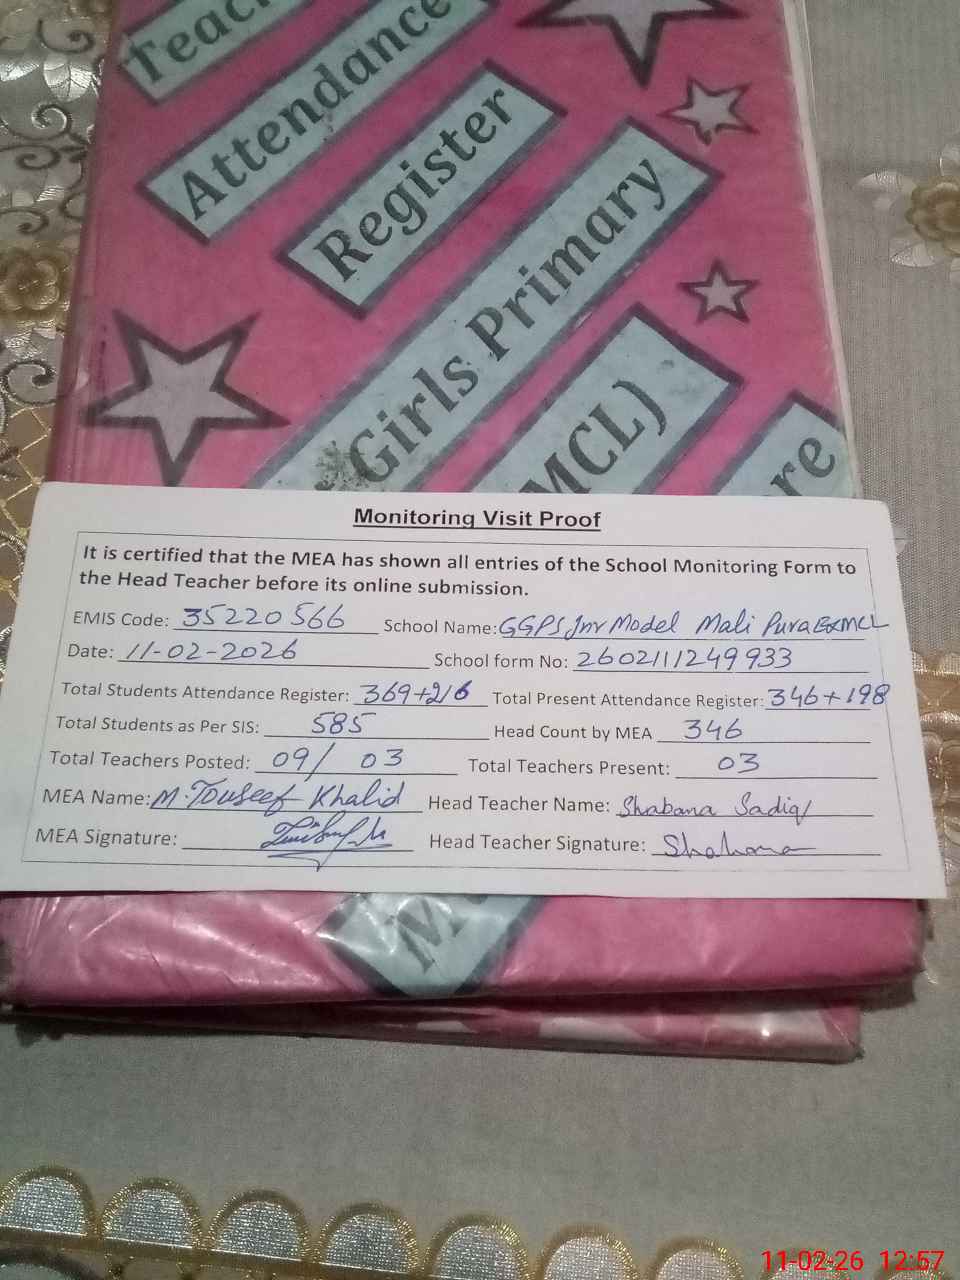 Teac
Attendance
Register
Girls Primary
MCL)
re
Monitoring Visit Proof
It is certified that the MEA has shown all entries of the School Monitoring Form to
the Head Teacher before its online submission.
EMIS Code: 35220566 School Name: GGPS Jnr Model Mali Pura ExMCL
Date: 11-02-2026 School form No: 2602111249933
Total Students Attendance Register: 369+216 Total Present Attendance Register: 346+198
Total Students as Per SIS: 585 Head Count by MEA 346
Total Teachers Posted: 09/ 03 Total Teachers Present: 03
MEA Name: M. Touseef Khalid Head Teacher Name: Shabana Sadiq
MEA Signature: Head Teacher Signature: Shabana
M
11-02-26 12:57